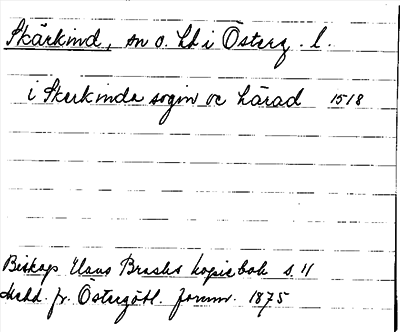 Skärkind, sn o. hd i Österg. l.
i Skerkinda sogin oc härad 1518
Biskop Hans Brasks kopiebok s. 11
Medd. fr. Östergötl. fornm. 1875